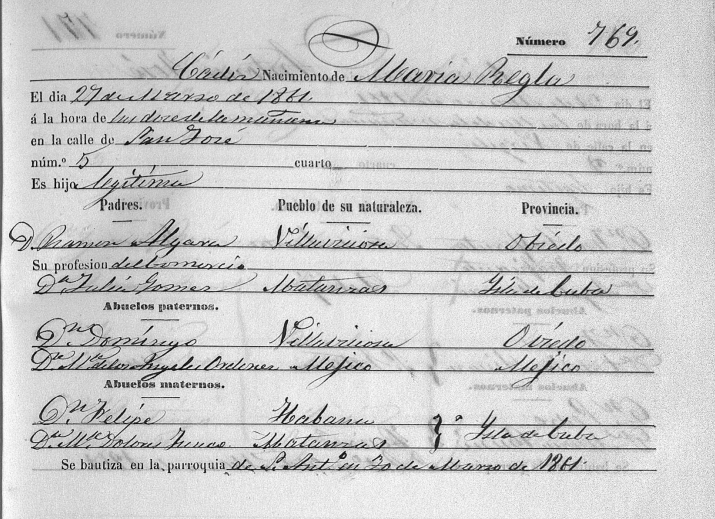 Número 769.
Cádiz Nacimiento de Maria Regla
El dia 27 de Marzo de 1861.
á la hora de las doce de la mañana
en la calle de San José
núm.º 5 cuarto
Es hija legítima
Padres. Pueblo de su naturaleza. Provincia.
D. Ramon Algara Villaviciosa Obiedo
Su profesion del Comercio
Dª Julia Gomez Matanzas Isla de Cuba
Abuelos paternos.
Dn Domingo Villaviciosa Oviedo
Dª Mª de los Angeles Ordenes Mejico Mejico
Abuelos maternos.
Dn Felipe Habana
Dª Mª Dolores Matanzas } Isla de Cuba
Se bautiza en la parroquia de S. Antº en 30 de Marzo de 1861.